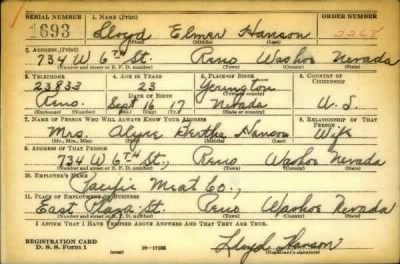 SERIAL NUMBER 1. NAME (Print) ORDER NUMBER (Print)
1693 Lloyd Elmer Hanson 2268
(First) (Middle) (Last)
2. ADDRESS (Print)
734 W 6th St. Reno Washoe Nevada
(Number and street or R. F. D. number) (Town) (County) (State)
3. TELEPHONE 4. AGE IN YEARS 5. PLACE OF BIRTH 6. COUNTRY OF CITIZENSHIP
23833 23 Yerington
DATE OF BIRTH (Town or county)
Reno. Sept 16 17 Nevada U. S.
(Exchange) (Mo.) (Day) (Yr.) (State or country)
7. NAME OF PERSON WHO WILL ALWAYS KNOW YOUR ADDRESS 8. RELATIONSHIP OF THAT PERSON
Mrs. Alyce Bertha Hanson Wife
(Mr., Mrs., Miss) (First) (Middle) (Last)
9. ADDRESS OF THAT PERSON
734 W 6th St., Reno Washoe Nevada
(Number and street or R. F. D. number) (Town) (County) (State)
10. EMPLOYER'S NAME
Pacific Meat Co.,
11. PLACE OF EMPLOYMENT OR BUSINESS
East Plaza St. Reno Washoe Nevada
(Number and street or R. F. D. number) (Town) (County) (State)
I AFFIRM THAT I HAVE VERIFIED ABOVE ANSWERS AND THAT THEY ARE TRUE.
REGISTRATION CARD
D. S. S. Form 1 16-17105 Lloyd Hanson
(Registrant's signature)